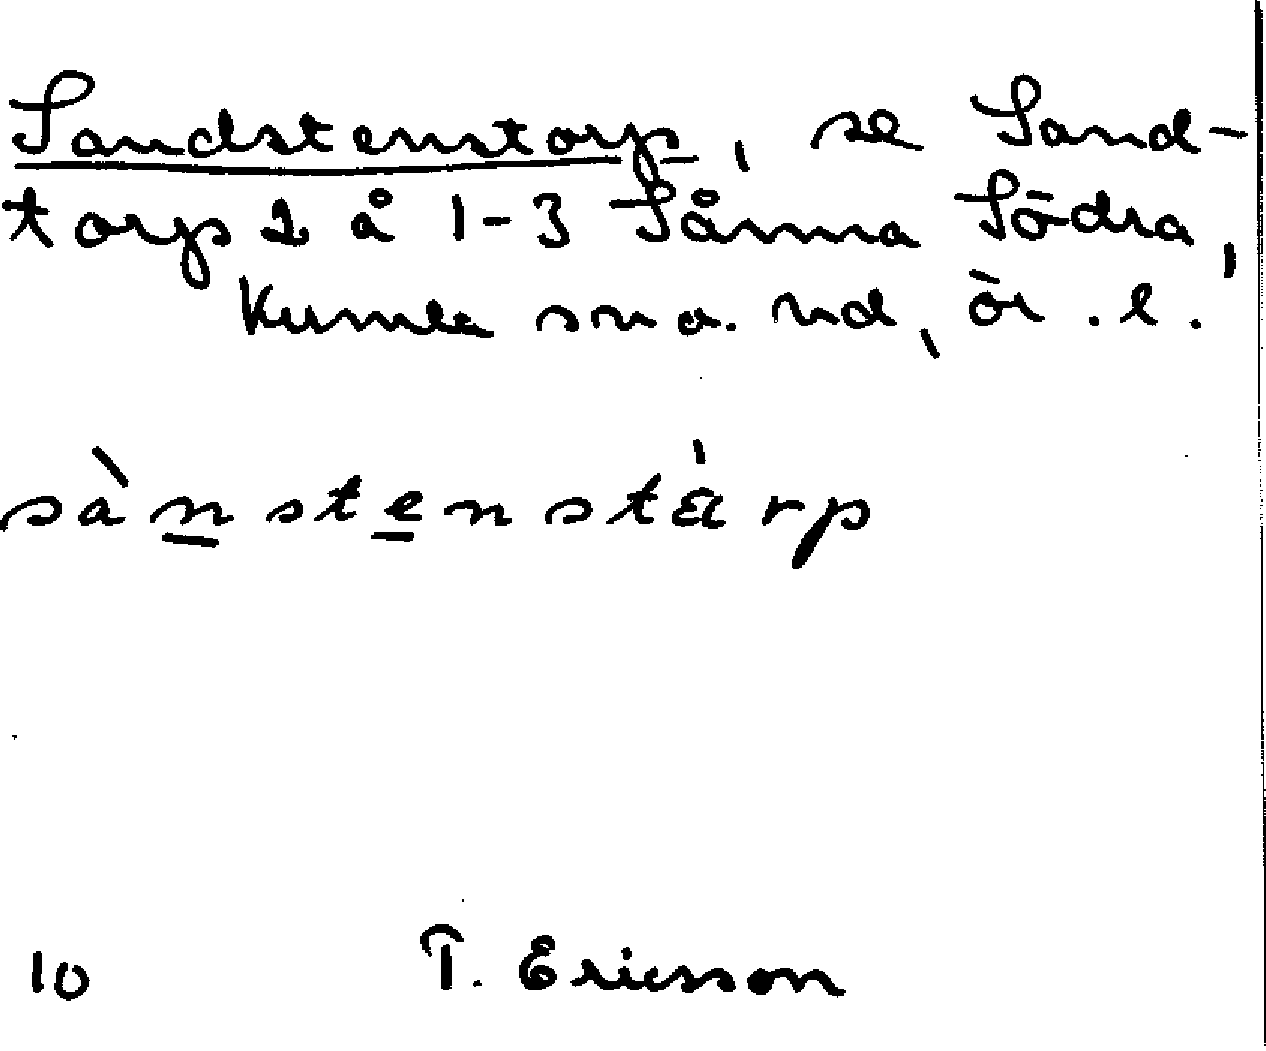 Sandstenstorp, se Sand-
torp 2 å 1-3 Sånna Södra,
Kumla sn o. hd, Ör. l.
sànstenstà̈rp
10 T. Ericsson